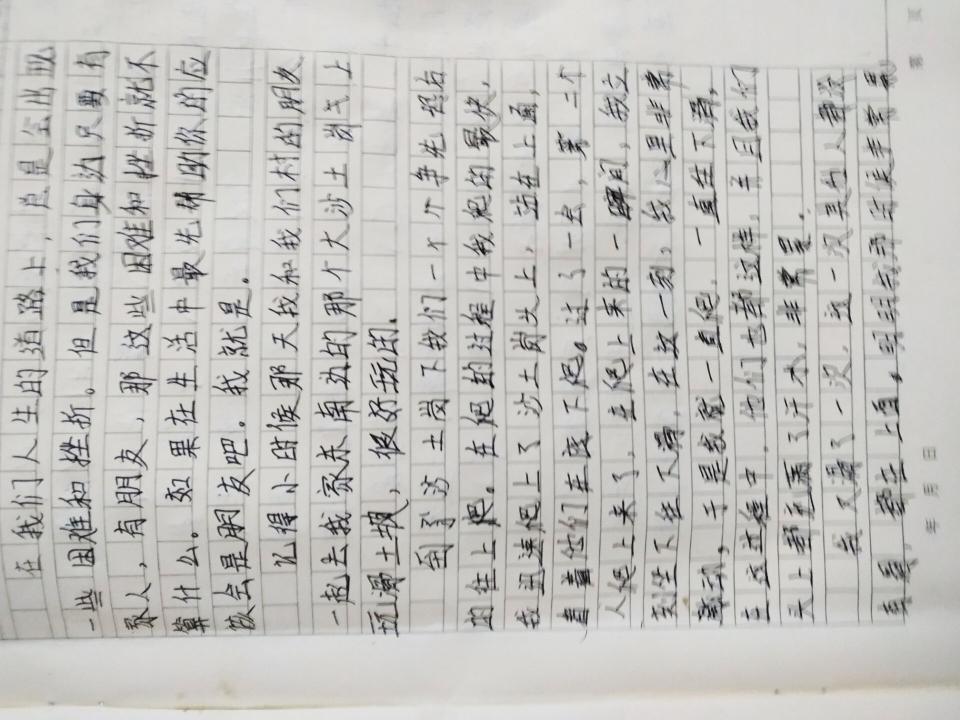 在我们人生的道路上，总是会出现
一些困难和挫折。但是我们身边只要有
家人，有朋友，那这些困难和挫折就不
算什么。如果在生活中最先帮助你的应
该会是朋友吧。我就是。
记得小时候那天我和我们村的朋友
一起去我家东南边的那个大沙土岗式上
玩滑土坡，很好玩的。
到了沙土岗下我们一个个争先恐后
的往上爬。在爬的过程中我爬的最快，
我迅速爬上了沙土岗头上，站在上面，
看着他们在底下爬。过了一会，第二个
人爬上来了，在爬上来的一瞬间，我立
刻坐下在下滑，在这一刻，我心里非常
激动。于是我就一直爬，一直往下滑。
在这过程中，他们也都这样，于是我们
头上都充满了汗水，非常累。
我又滑了一次，这一次是
第 页
年 月 日